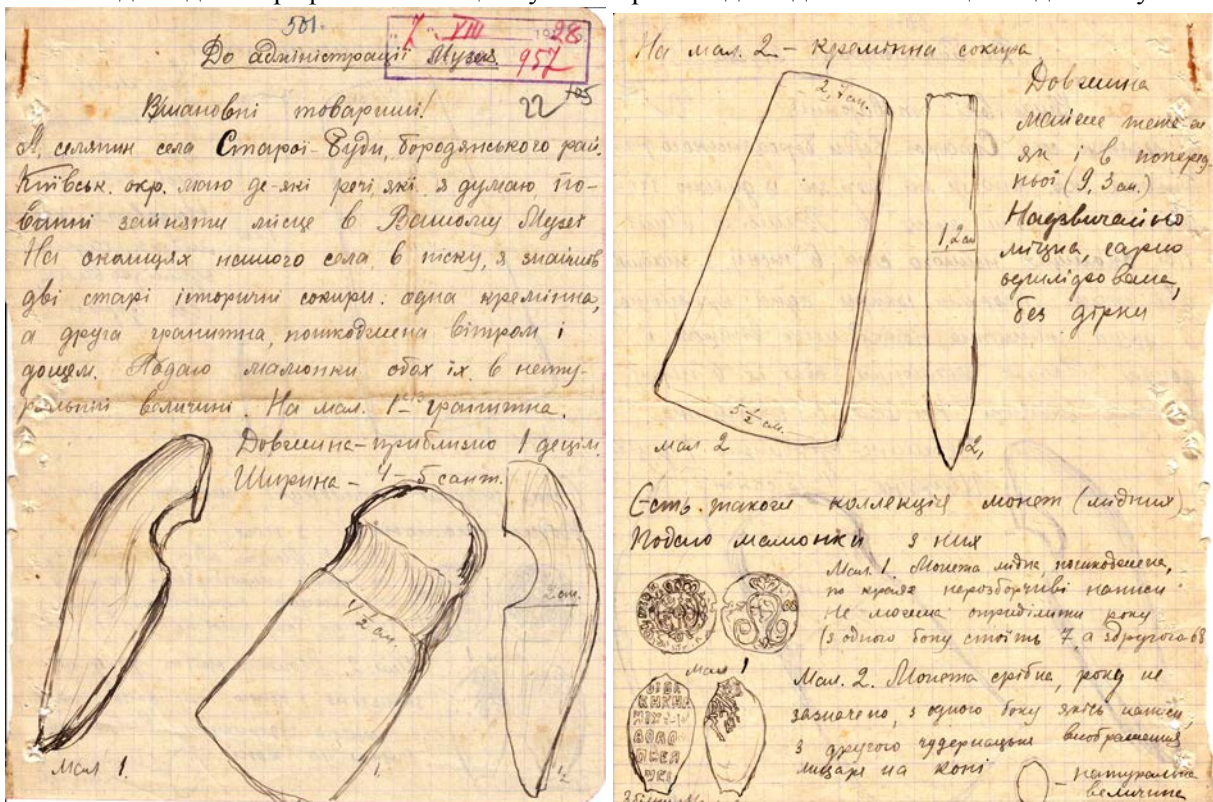 501.
7 VIII 1928
957
До адміністрації Музея.
22
Вшановні товариші!
Я, селянин села Старої-Буди, Бородянського рай.
Київськ. окр. маю де-які речі, які я думаю по-
винні зайняти місце в Вашому Музеї
На околицях нашого села, в піску, я знайшов
дві старі історичні сокири. одна кремінна,
а друга гранитна, пошкоджена вітром і
дощем. Подаю малюнки обох їх в нату-
ральній величині. На мал. 1 гранитна.
Довжина – приблизно 1 децім.
Ширина – 4 – 5 сант.
4 1/2 см.
2 см.
Мал 1.
1.
1/2
На мал. 2 – кремінна сокира
2,4 см.
Довжина
майже теж сама
як і в поперед-
ньої (9,3 см.)
Надзвичайно
міцна, гарно
одшліфована,
без дірки
1,2 см
5 1/2 см.
мал. 2
2,
Єсть також коллекція монет (мідних)
Подаю малюнки з них
Мал. 1 Монета мідна пошкоджена,
по краях нерозборчиві написи
Не можна оприділити року
(з одного боку стоїть 7, а здругого 68
мал 1
Мал. 2. Монета срібна, року не
зазначено, з одного боку якісь написи,
з другого чудернацьке виображення
лицаря на коні
натуральна
величина